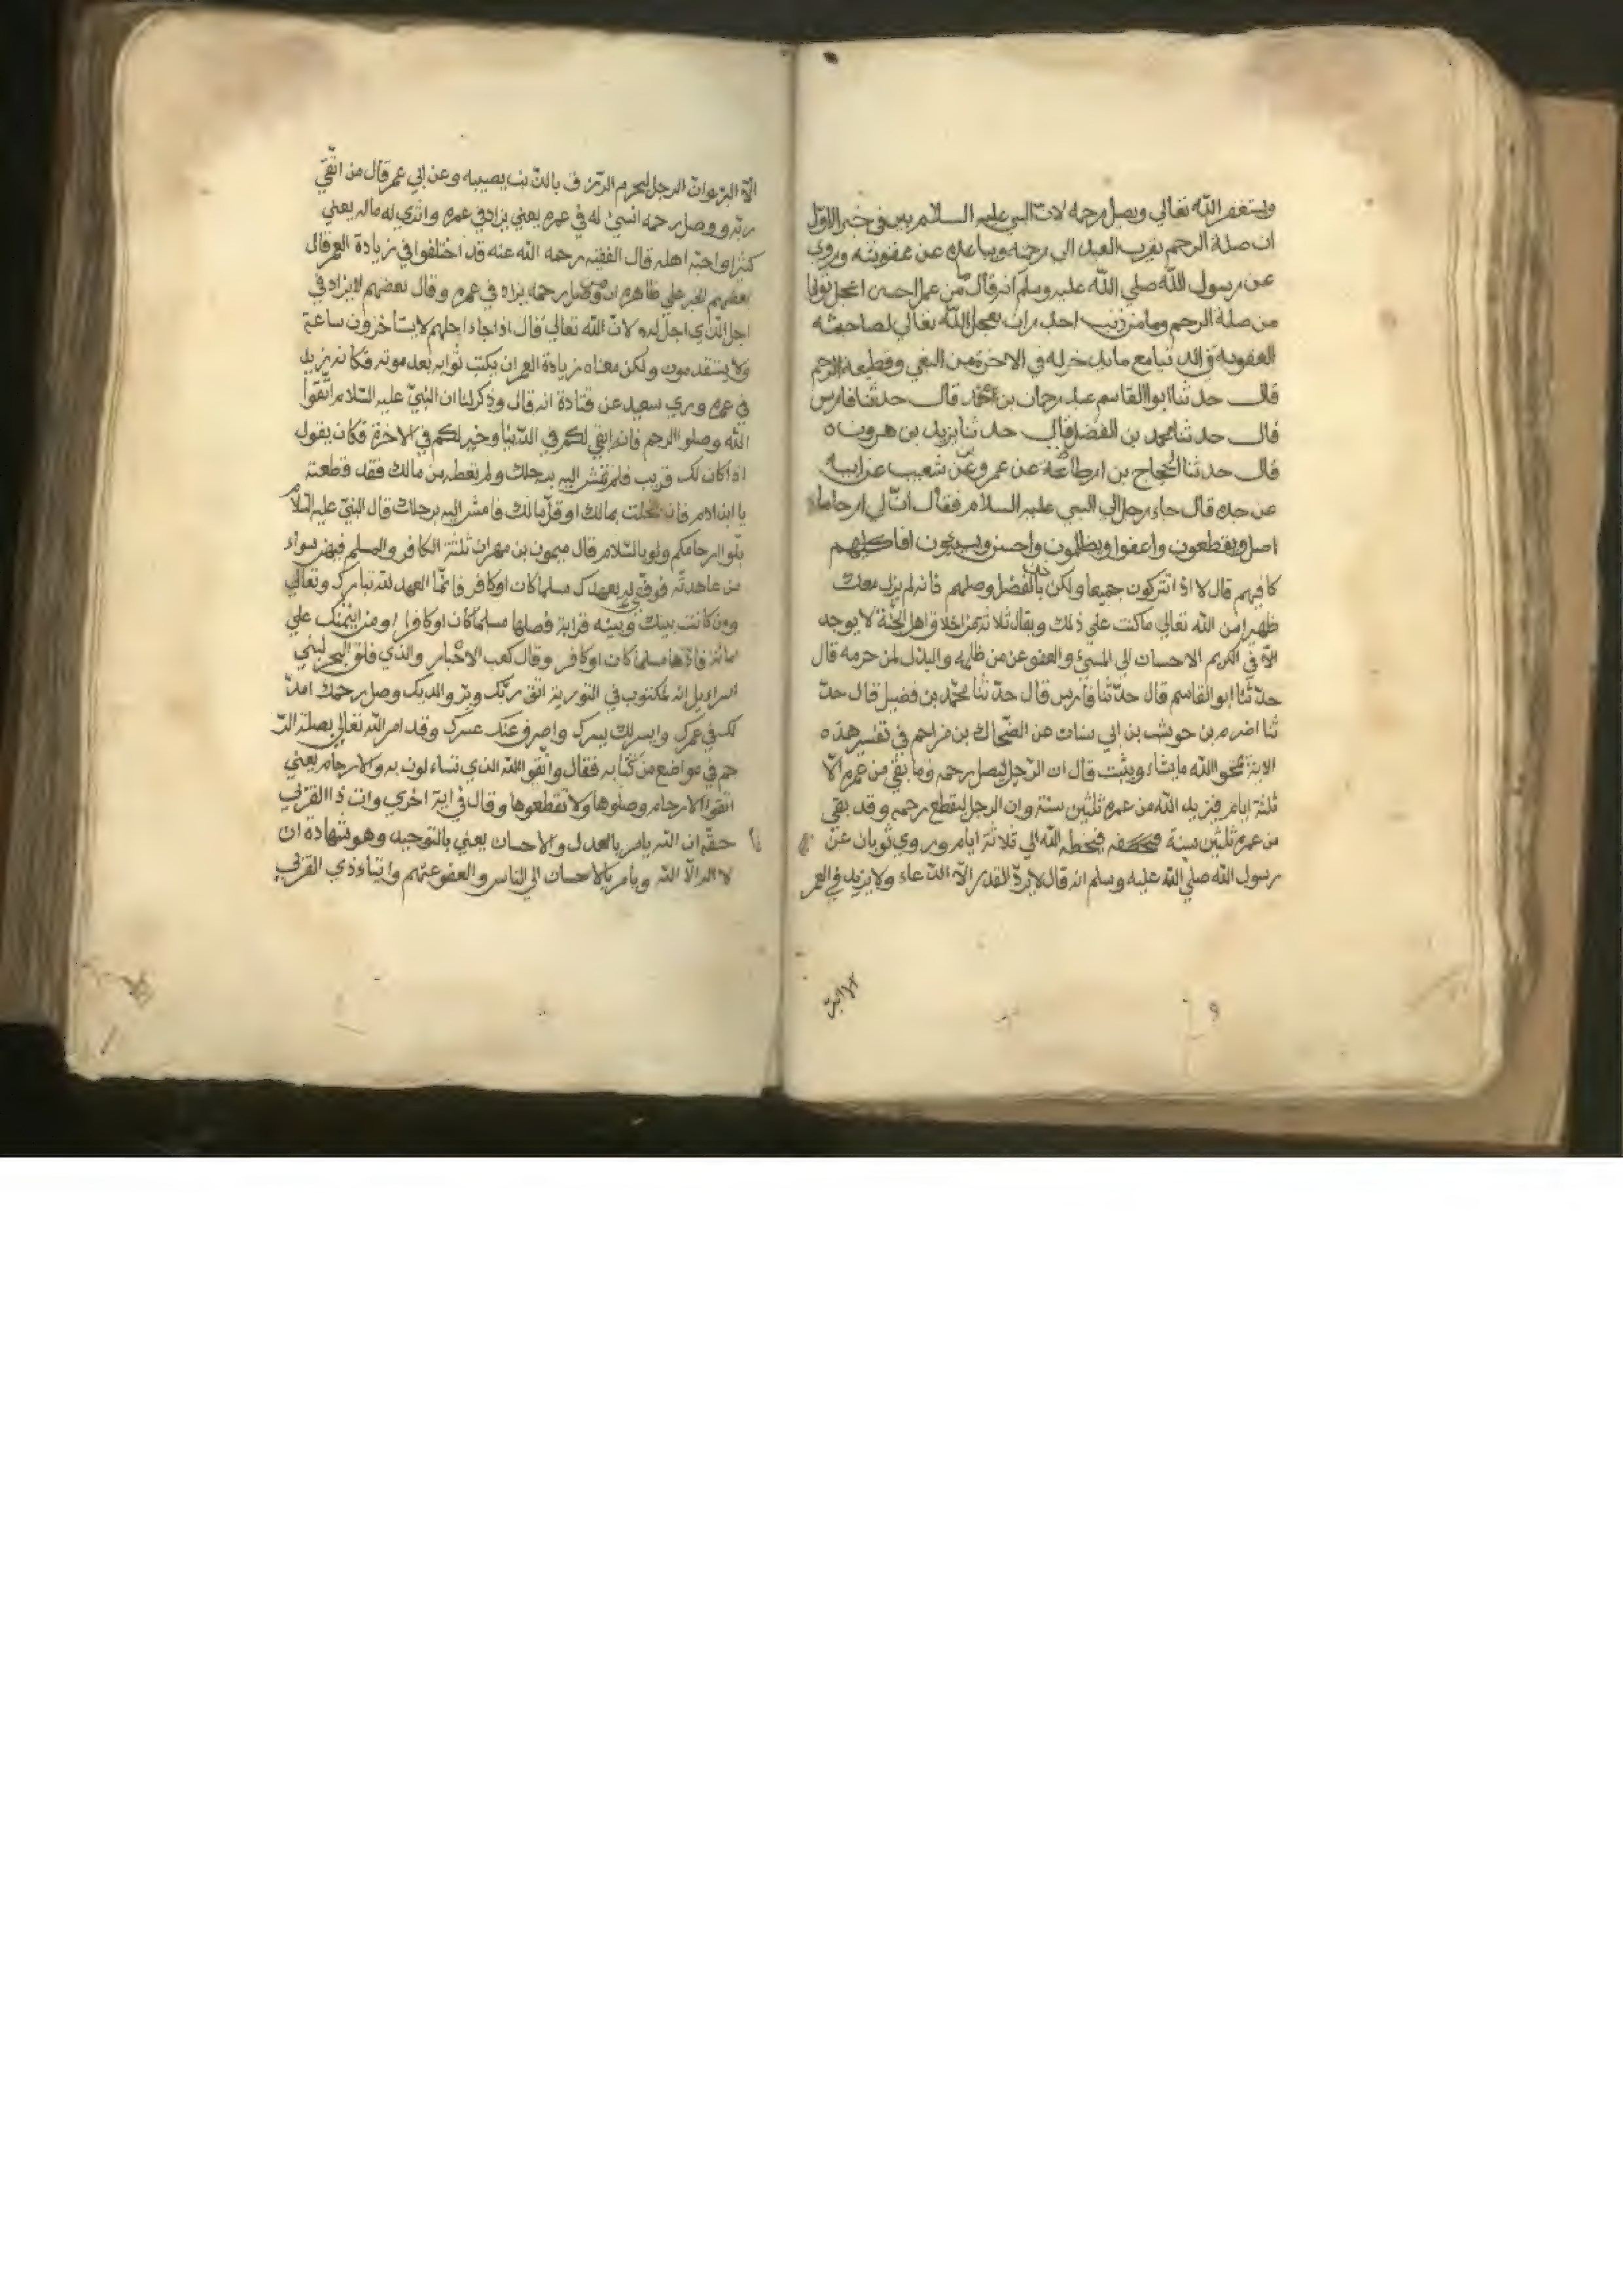 ويستغفر الله تعالي ويصل رحمه لان النبي عليه السلام بين في خبر الاول
ان صلة الرحم يقرب العبد الي رحمته ويباعده عن عقوبته وروي
عن رسول الله صلي الله عليه وسلم انه قال من عمل حسن اعجل ثوابا
من صلة الرحم وما من ذنب احدران يعجل الله تعالي لصاحبه
العقوبة في الدنيا مع ما يدخر له في الاخرة من البغي وقطيعة الرحم
قال حدثنا ابوا القاسم عبد رحمان بن محمد قال حدثنا فارس
قال حدثنا محمد بن الفضل قال حدثنا يزيد بن هرون ه
قال حدثنا الحجاج بن ارطاة عن عمرو عن شعيب عن ابيه
عن جده قال جاء رجل الي النبي عليه السلام فقال ان لي ارحاما
اصل ويقطعون واعفوا ويظلمون واحسن ويسيئون افاكافيهم
كافيهم قال لا اذ انتركون جميعا ولكن خذ بالفضل وصلهم فانه لم يزل معك
ظهيرا من الله تعالي ما كنت علي ذلك ويقال ثلاثة من اخلاق اهل الجنة لا يوجد
الا في الكريم الاحسان الي المسيء والعفو عن من ظلمه والبذل لمن حرمه قال
حدثنا ابو القاسم قال حدثنا فارس قال حدثنا محمد بن فضيل قال حد
ثنا اضرم بن حوشب بن ابي سنات عن الضحاك بن مزاحم في تفسير هذه
الاية يمحو الله ما يشاء ويثبت قال ان الرجل ليصل رحمه وما بقي من عمره الا
ثلثة ايام فيزيد الله من عمره ثلثين سنة وان الرجل ليقطع رحمه وقد بقي
من عمره ثلثين سنة فيحطه الله الي ثلاثة ايام وروي ثوبان عن
رسول الله صلي الله عليه وسلم انه قال لا يرد القدر الا الدعاء ولا يزيد في العمر
الا البر
الا البر وان الرجل ليحرم الرزق بالذنب يصيبه وعن ابي عمر قال من اتقي
ربه ووصل رحمه انسئ له في عمره يعني يزاد في عمره واثري له ماله يعني
كثيرا واحبه اهله قال الفقيه رحمه الله عنه قد اختلفوا في زيادة العمر قال
بعضهم الخبر علي ظاهره ان من وصل رحمه يزاد في عمره وقال بعضهم لا يزاد في
اجل الذي اجل له لان الله تعالي قال اذا جاء اجلهم لا يستاخرون ساعة
ولا يستقدمون ولكن معناه زيادة العمر ان يكتب ثوابه بعد موته فكانه يزيد
في عمره وري سعيد عن قتادة انه قال وذكر لنا ان النبي عليه السلام اتقوا
الله وصلوا الرحم فانه ابقي لكم في الدنيا وخير لكم في الاخرة فكان يقول
اذا كان لك قريب فلم تمش اليه برجلك ولم يعطه من مالك فقد قطعته
يا ابن ادم فان بخلت بمالك او قل مالك فامش اليه برجلك قال النبي عليه السلام
بلو ارحامكم ولو بالسلام قال ميمون بن مهران ثلثة الكافر والمسلم فيهن سواء
من عاهدته فوفي له بعهدك مسلما كان او كافر فانما العهد لله تبارك وتعالي
ومن كانت بينك وبينه قرابة فصلها مسلما كان او كافرا ومن ائتمنك علي
امانة فادها مسلما كان او كافر وقال كعب الاحبار والذي فلق البحر لبني
اسرايل انه لمكتوب في التورية اتق ربك وبر والديك وصل رحمك امد
لك في عمرك وايسر لك يسرك واصرف عنك عسرك وقد امر الله تعالي بصلة الر
حم في مواضع من كتابه فقال واتقوا الله الذي تساءلون به والارحام يعني
اتقوا الارحام وصلوها ولا تقطعوها وقال في اية اخري وات ذا القربي
حقه ان الله يامر بالعدل والاحسان يعني بالتوحيد وهو شهادة ان
لا اله الا الله ويامر بالاحسان الي الناس والعفو عنهم وايتاء ذي القربي